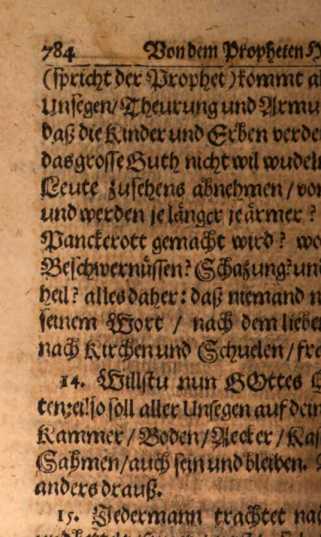 784 Von dem Propheten
(spricht der Prophet) kommt
Unsegen/ Theurung und Armu
daß die Kinder und Erben verde
das grosse Guth nicht wil wudeln
Leute zusehens abnehmen/ von
und werden je länger je ärmer?
Panckerott gemacht wird? wo
Beschwernüssen? Schatzung? und
heil? alles daher: daß niemand n
seinem Wort / nach dem lieben
nach Kirchen und Schuelen/ fre
14. Willstu nun GOttes
ten: ei! so soll aller Unsegen auf dein
Kammer/ Boden/ Aecker/ Kas
Sahmen/ auch sein und bleiben.
anders drauß.
15. Jedermann trachtet nac